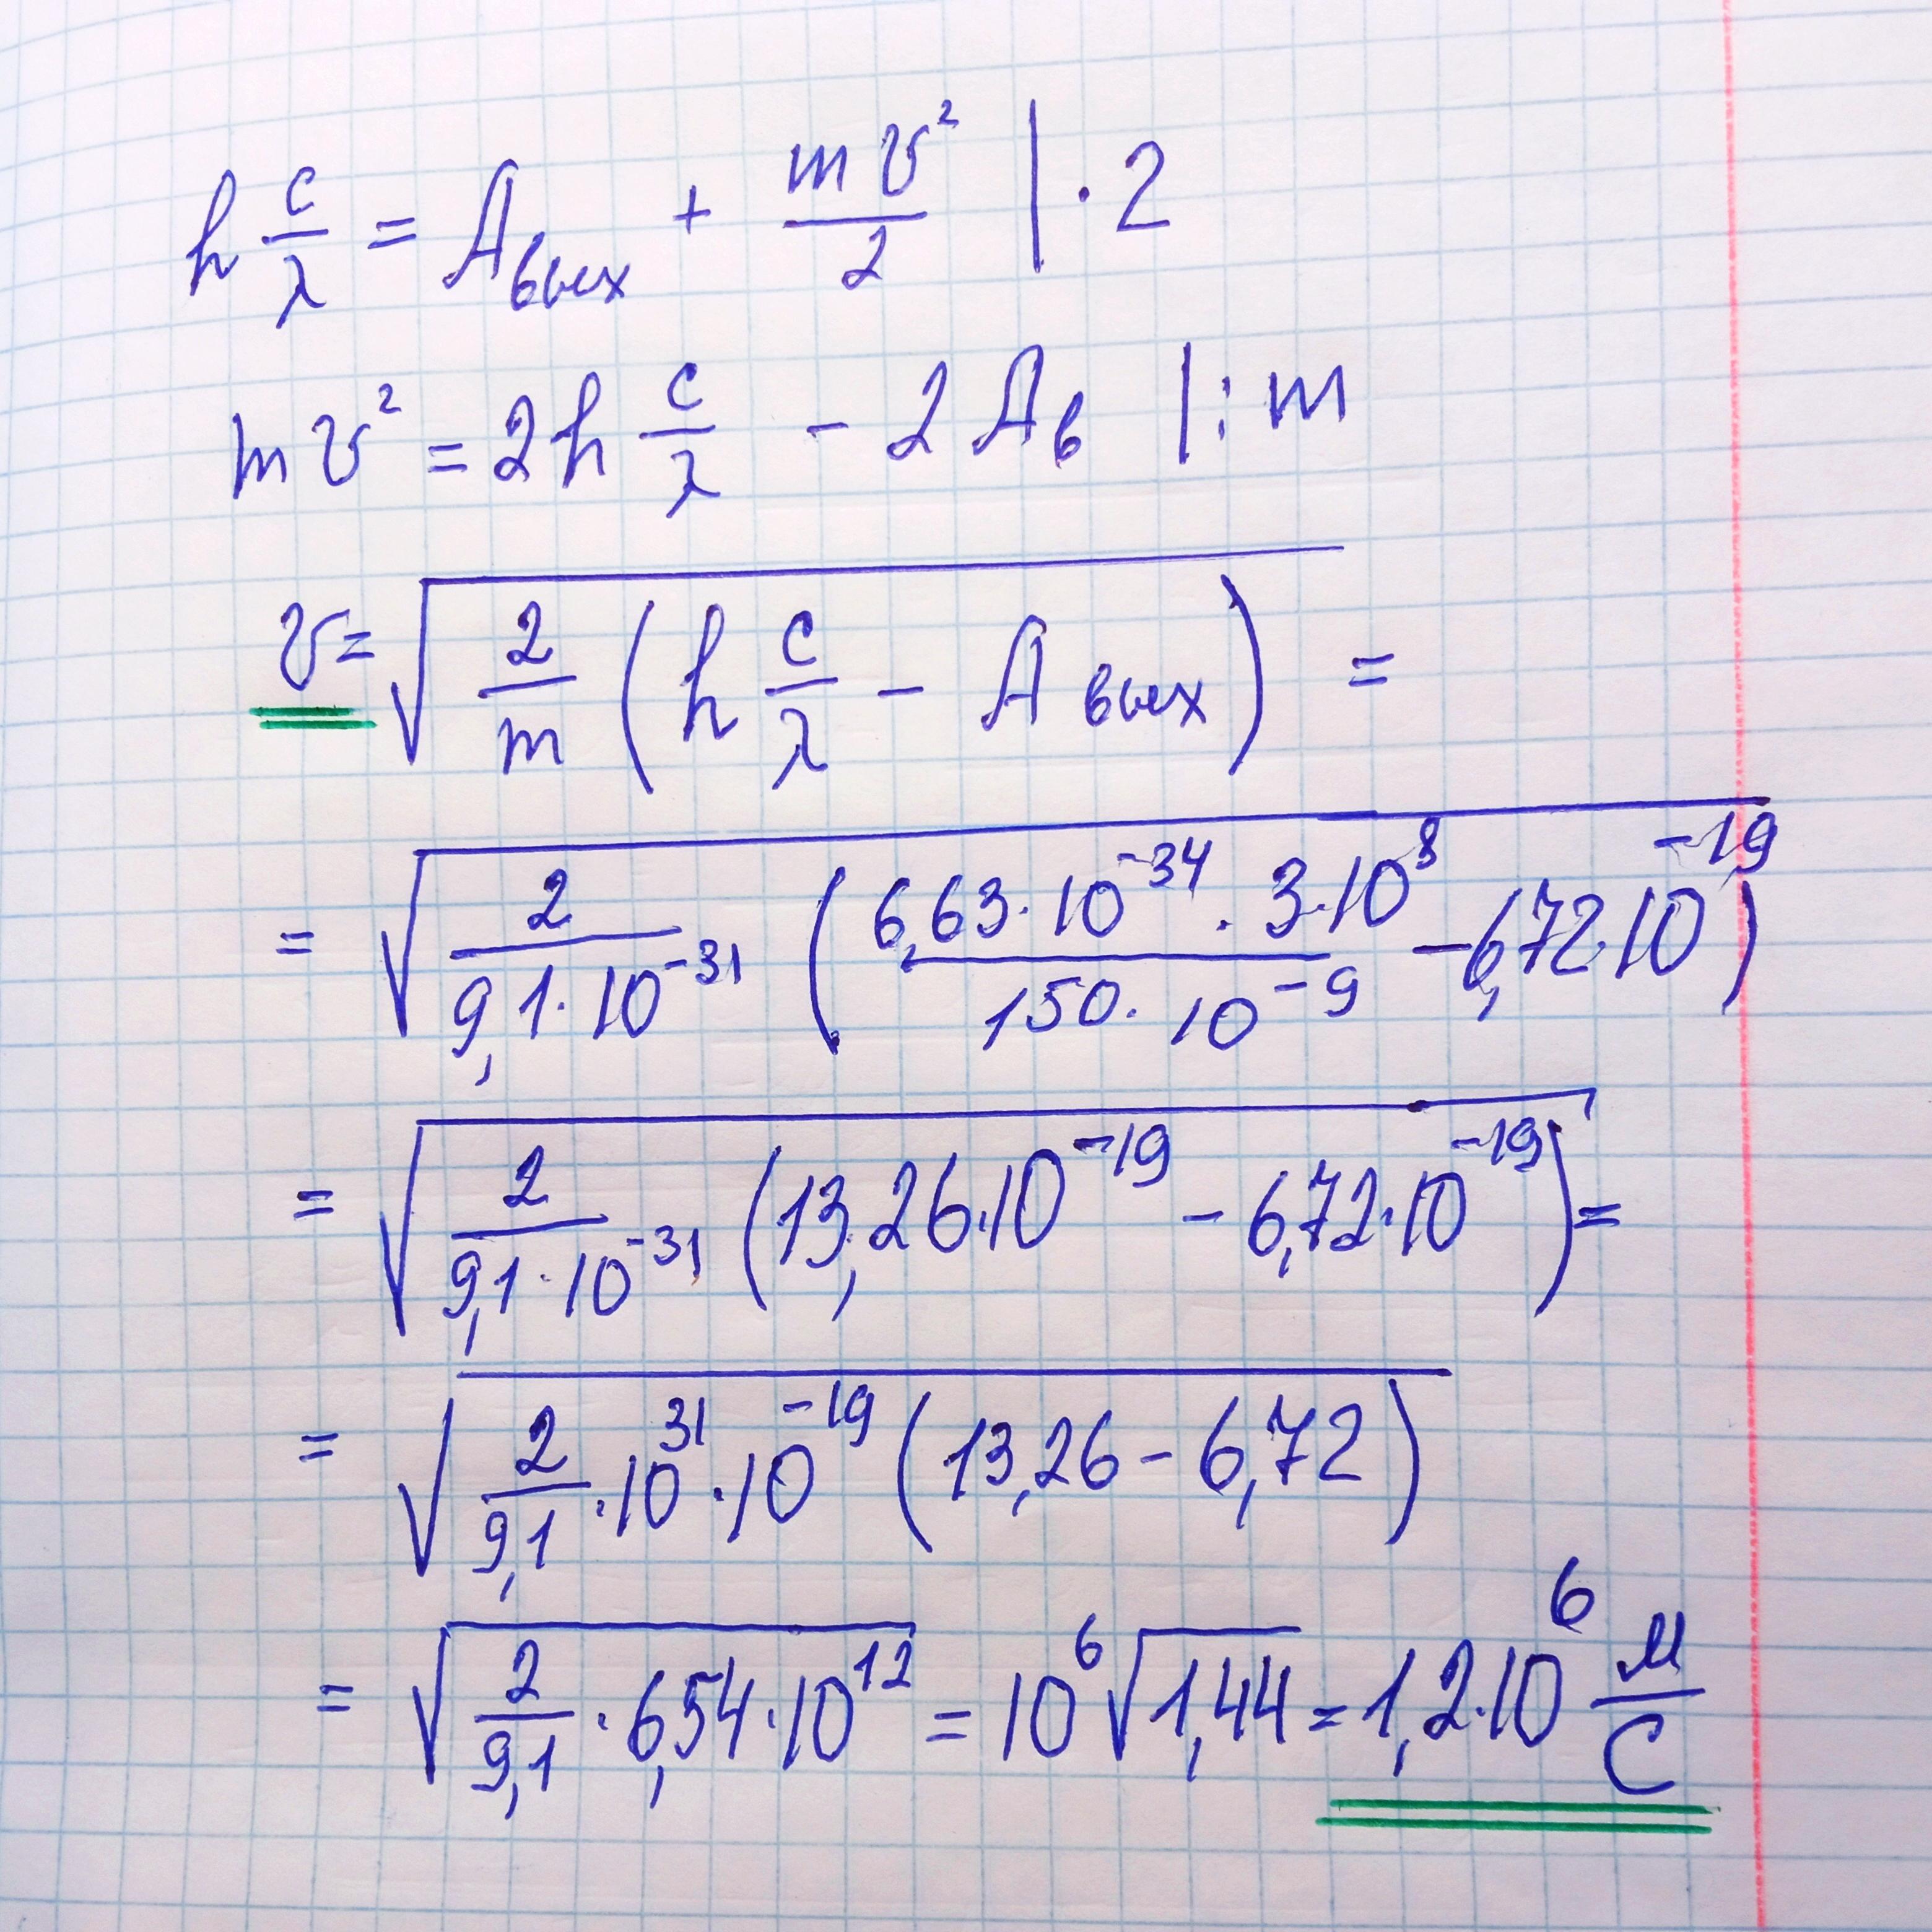 h c/λ = Aвых + mv²/2 | · 2
mv² = 2h c/λ - 2Aв | : m
v = √(2/m (h c/λ - Aвых)) =
= √(2/(9,1·10⁻³¹) ((6,63·10⁻³⁴ · 3·10⁸)/(150·10⁻⁹) - 6,72·10⁻¹⁹))
= √(2/(9,1·10⁻³¹) (13,26·10⁻¹⁹ - 6,72·10⁻¹⁹)) =
= √(2/9,1 · 10³¹ · 10⁻¹⁹ (13,26 - 6,72))
= √(2/9,1 · 6,54 · 10¹²) = 10⁶ √1,44 = 1,2·10⁶ м/с